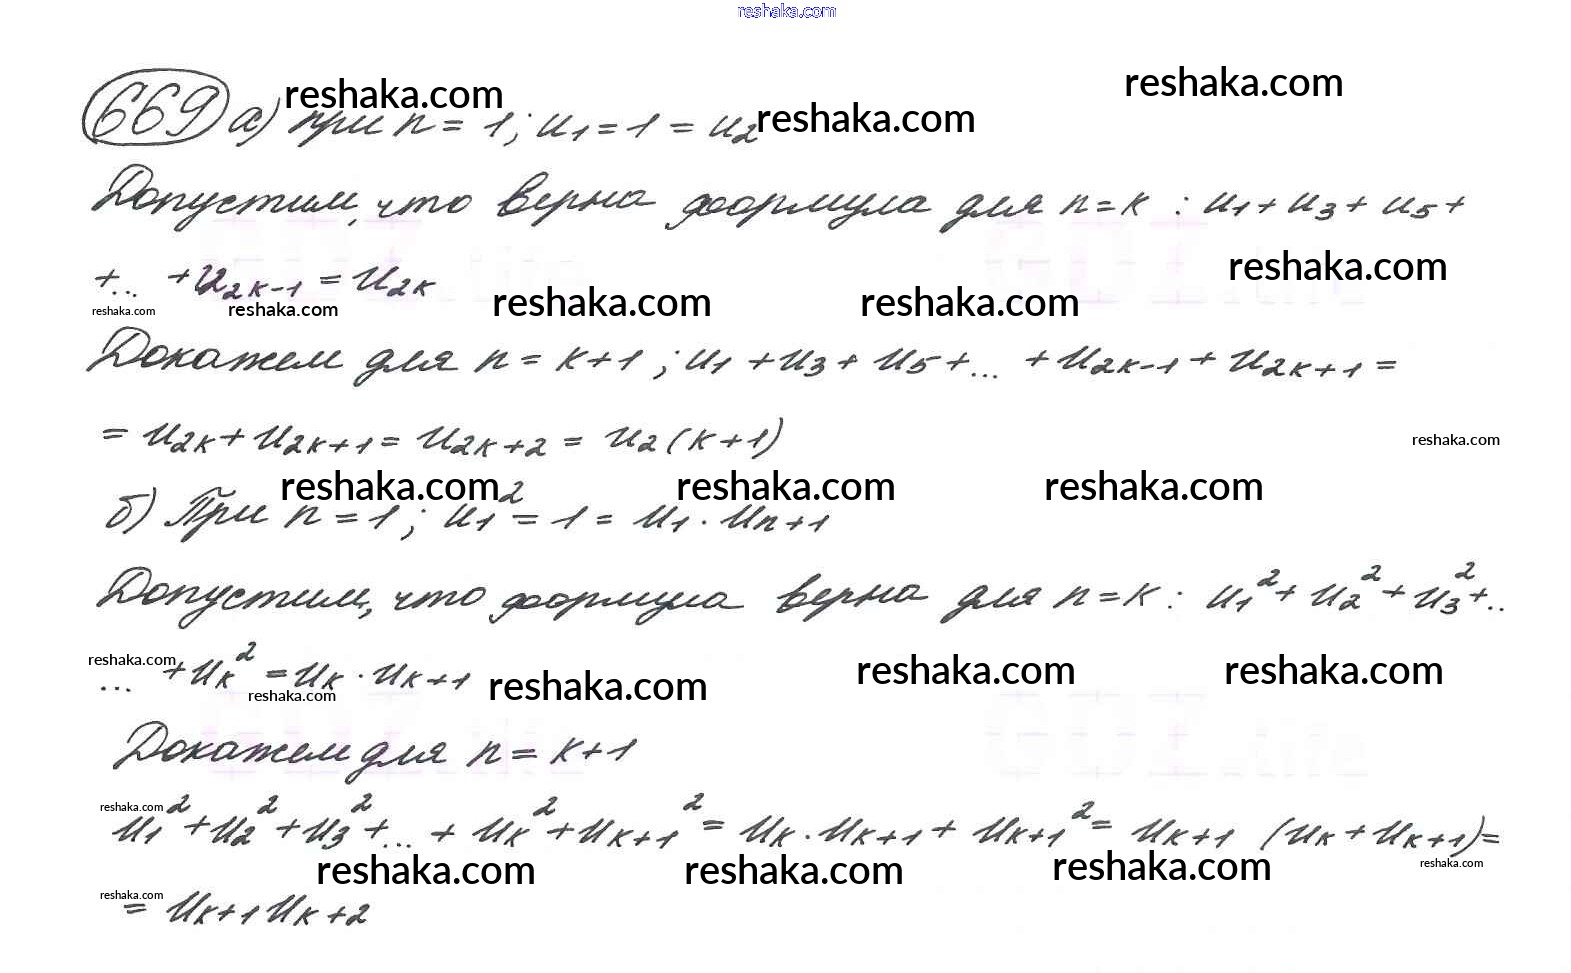 reshaka.com
669 а) при n = 1; u₁ = 1 = u₂
reshaka.com reshaka.com reshaka.com
Допустим, что верна формула для n = k : u₁ + u₃ + u₅ +
+... + u₂ₖ₋₁ = u₂ₖ
reshaka.com
reshaka.com reshaka.com reshaka.com reshaka.com
Докажем для n = k+1 ; u₁ + u₃ + u₅ +... + u₂ₖ₋₁ + u₂ₖ₊₁ =
= u₂ₖ + u₂ₖ₊₁ = u₂ₖ₊₂ = u₂(k+1)
reshaka.com
reshaka.com reshaka.com reshaka.com
б) При n = 1; u₁² = 1 = u₁ · uₙ₊₁
Допустим, что формула верна для n = k : u₁² + u₂² + u₃² +..
... + uₖ² = uₖ · uₖ₊₁
reshaka.com reshaka.com reshaka.com reshaka.com reshaka.com
Докажем для n = k+1
reshaka.com
u₁² + u₂² + u₃² +... + uₖ² + uₖ₊₁² = uₖ · uₖ₊₁ + uₖ₊₁² = uₖ₊₁ (uₖ + uₖ₊₁) =
reshaka.com reshaka.com reshaka.com reshaka.com
reshaka.com
= uₖ₊₁ uₖ₊₂